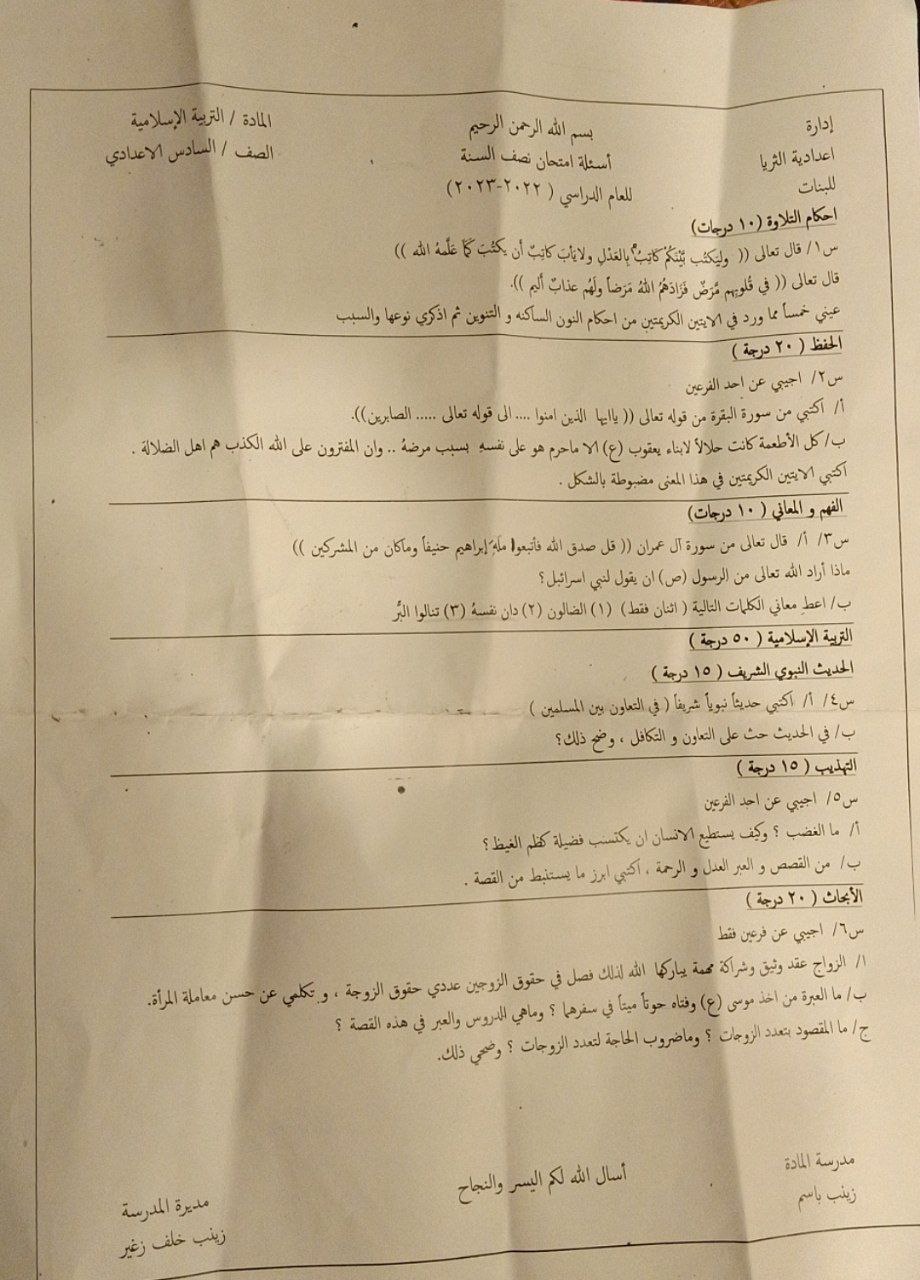 إدارة
اعدادية الثريا
للبنات
بسم الله الرحمن الرحيم
أسئلة امتحان نصف السنة
للعام الدراسي ( ٢٠٢٢-٢٠٢٣)
المادة / التربية الإسلامية
الصف / السادس الاعدادي
احكام التلاوة (١٠ درجات)
س١/ قال تعالى (( وليَكتُب بَّيْنَكُمْ كَاتِبٌ بِالعَدْلِ ولايَأبَ كاتِبٌ أن يكتُبَ كَمَا عَلَّمهُ الله ))
قال تعالى (( في قُلوبِهِم مَّرَضٌ فَزَادَهُمُ اللهُ مَرَضاً ولَهُم عذابٌ أَليم )).
عيني خمساً مما ورد في الايتين الكريمتين من احكام النون الساكنه و التنوين ثم اذكري نوعها والسبب
الحفظ ( ٢٠ درجة )
س٢/ اجيبي عن احد الفرعين
أ/ اكتبي من سورة البقرة من قوله تعالى (( ياايها الذين امنوا .... الى قوله تعالى ..... الصابرين)).
ب/ كل الأطعمة كانت حلالاً لابناء يعقوب (ع) الا ماحرم هو على نفسهِ بسبب مرضهُ .. وان المفترون على الله الكذب هم اهل الضلالة .
اكتبي الايتين الكريمتين في هذا المعنى مضبوطة بالشكل .
الفهم و المعاني ( ١٠ درجات)
س٣/ أ/ قال تعالى من سورة آل عمران (( قل صدق الله فأتبعوا ملَهِ إبراهيم حنيفاً وماكان من المشركين ))
ماذا أراد الله تعالى من الرسول (ص) ان يقول لنبي اسرائيل؟
ب/ اعطِ معاني الكلمات التالية ( اثنان فقط) (١) الضالون (٢) دان نفسهُ (٣) تنالوا البُّر
التربية الإسلامية ( ٥٠ درجة )
الحديث النبوي الشريف ( ١٥ درجة )
س٤/ أ/ اكتبي حديثاً نبوياً شريفاً ( في التعاون بين المسلمين )
ب/ في الحديث حث على التعاون و التكافل ، وضح ذلك؟
التهذيب ( ١٥ درجة )
س٥/ اجيبي عن احد الفرعين
أ/ ما الغضب ؟ وكيف يستطيع الانسان ان يكتسب فضيلة كظم الغيظ؟
ب/ من القصص و العبر العدل و الرحمة ، اكتبي ابرز ما يستنبط من القصة .
الأبحاث ( ٢٠ درجة )
س٦/ اجيبي عن فرعين فقط
ا/ الزواج عقد وثيق وشراكة مهمة يباركها الله لذلك فصل في حقوق الزوجين عددي حقوق الزوجة ، و تكلمي عن حسن معاملة المرأة.
ب/ ما العبرة من اخذ موسى (ع) وفتاه حوتاً ميتاً في سفرهما ؟ وماهي الدروس والعبر في هذه القصة ؟
ج/ ما المقصود بتعدد الزوجات ؟ وماضروب الحاجة لتعدد الزوجات ؟ وضحي ذلك.
مدرسة المادة
زينب باسم
أسال الله لكم اليسر والنجاح
مديرة المدرسة
زينب خلف زغير